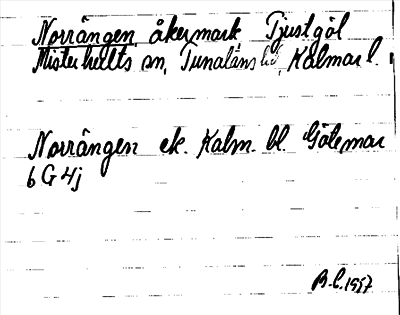 Norrängen åkermark Tjustgöl
Misterhults sn, Tunaläns hd, Kalmar l.
Norrängen ek. Kalm. bl. Götemar
6 G 4j
B.L. 1957